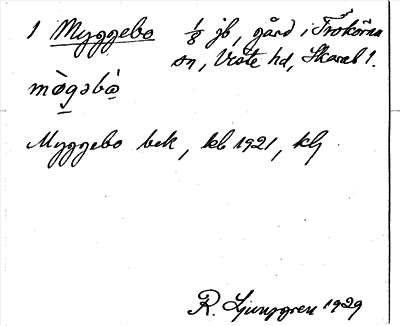 1 Myggebo 1/8 jb, gård i Trökörna
sn, Viste hd, Skarab l.
mò̱gəbò̱
Myggebo bek, kb 1921, klj
R. Ljunggren 1929